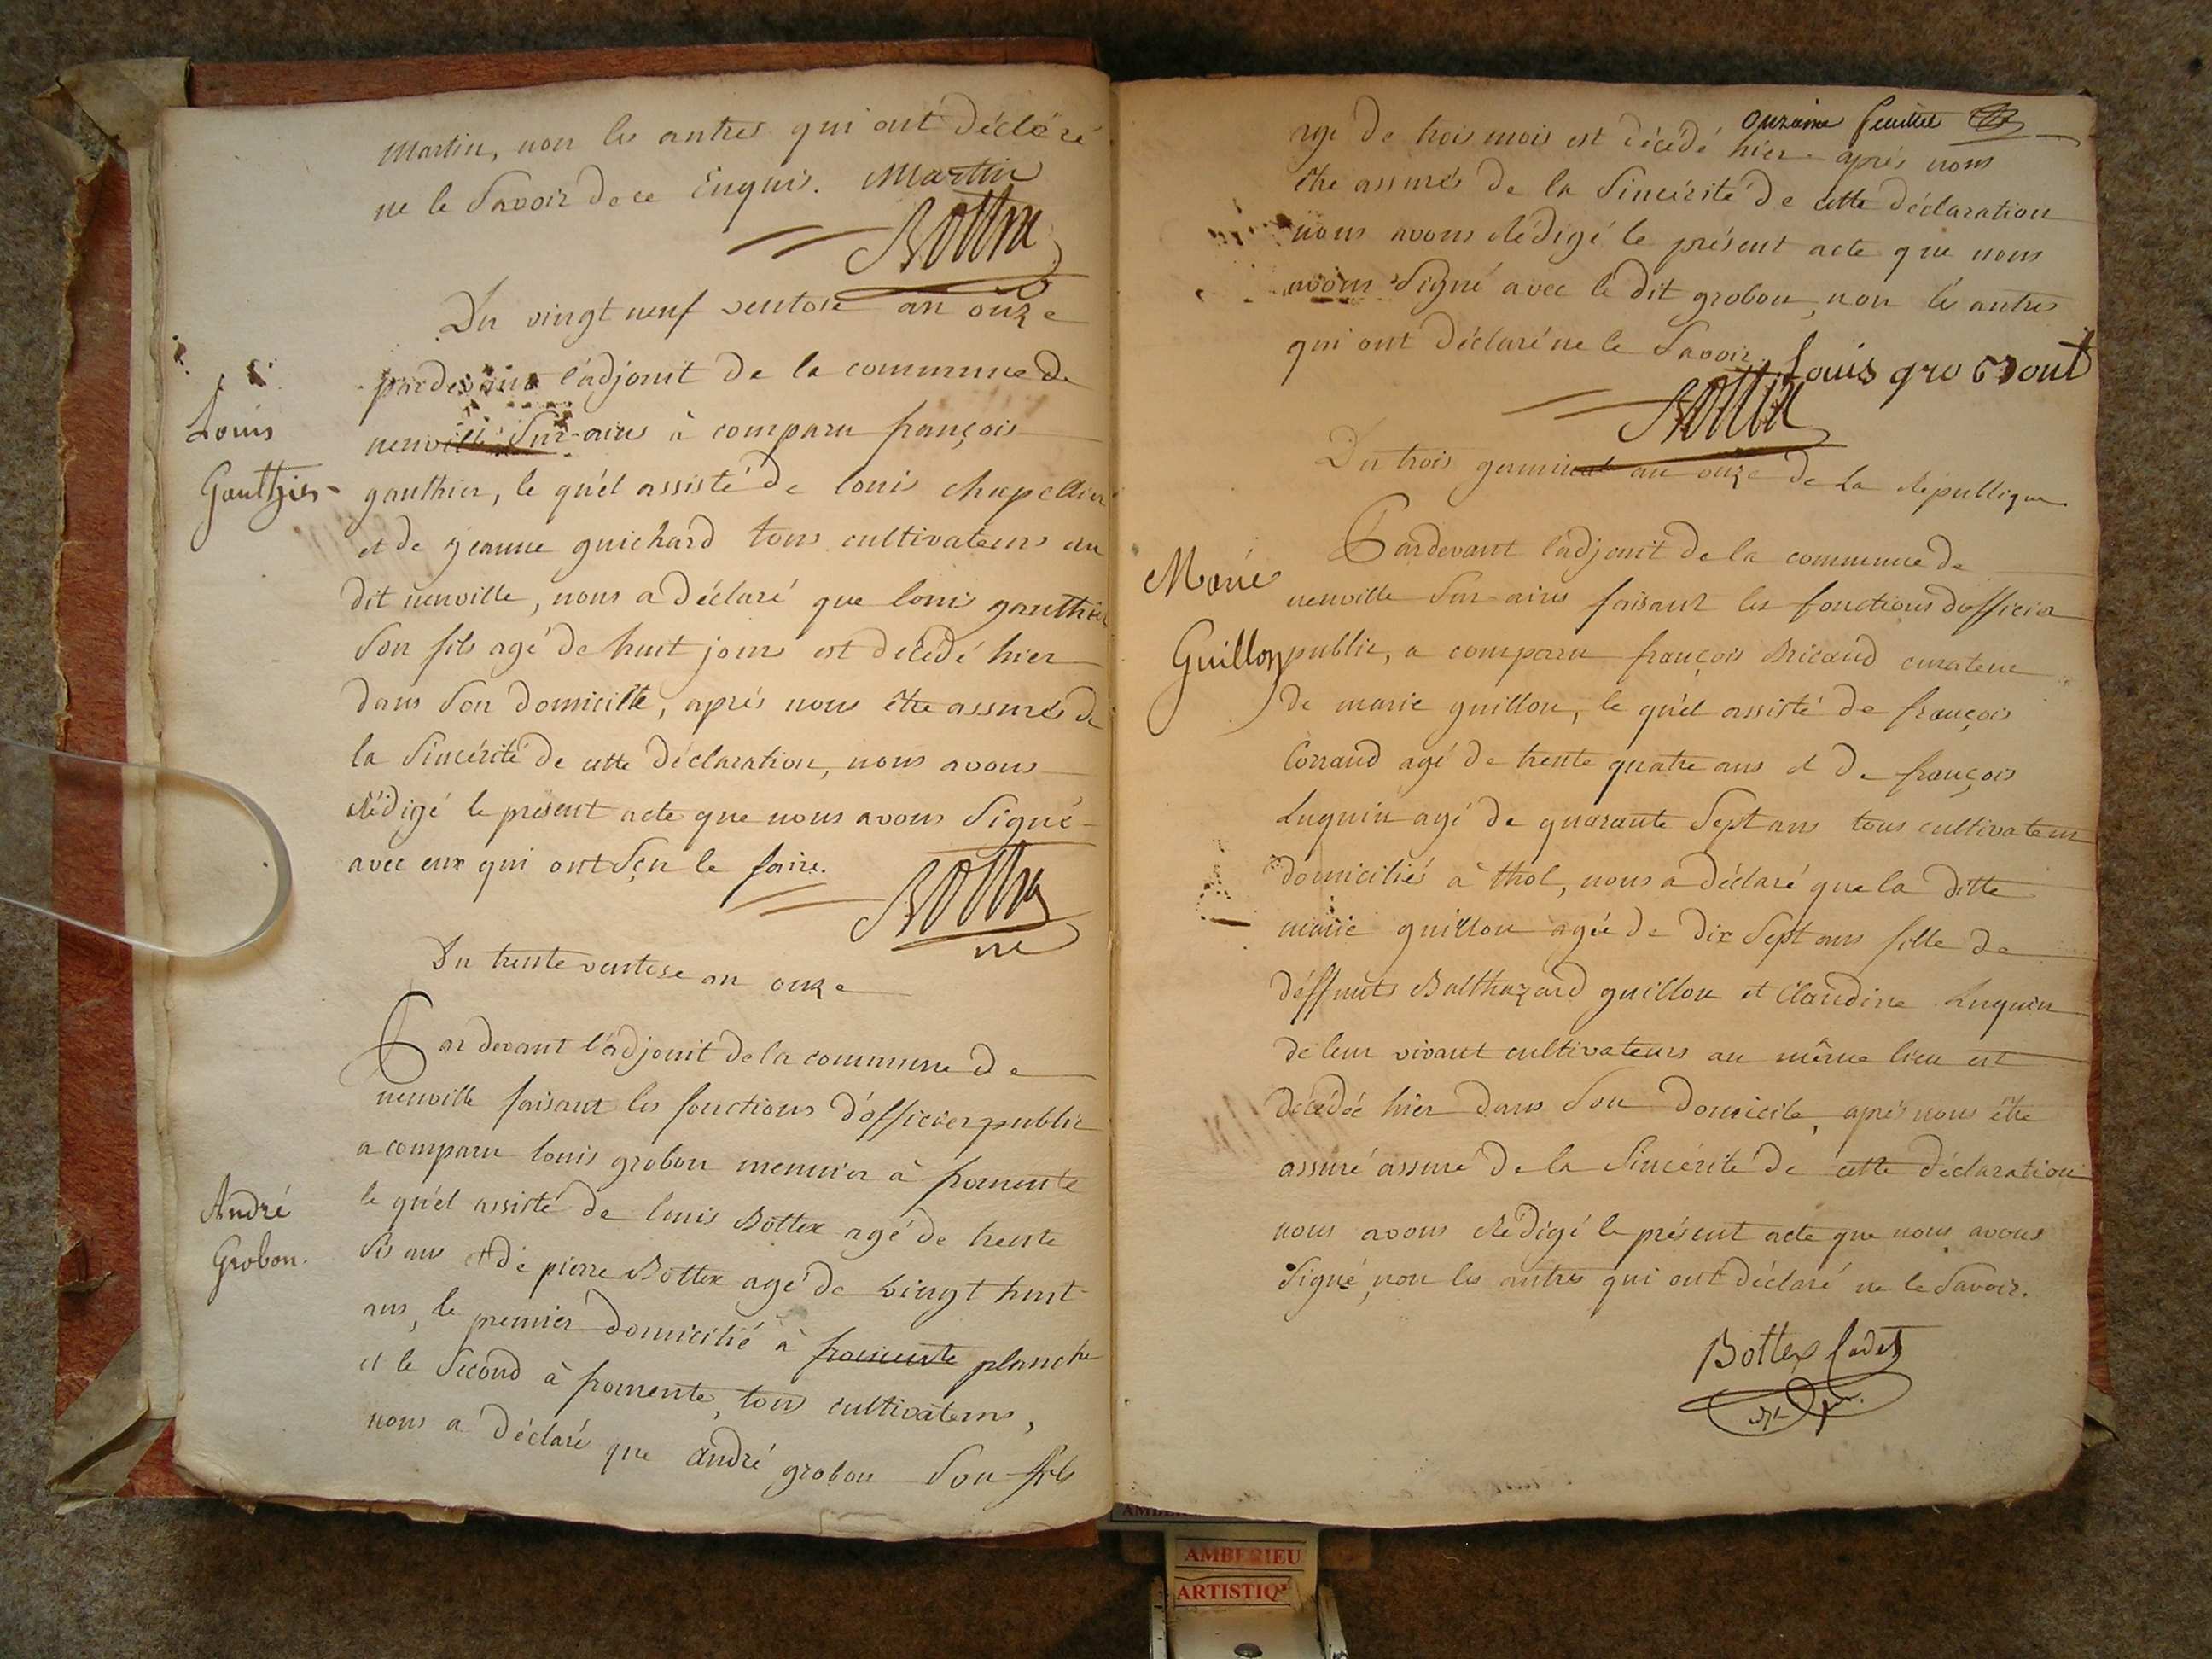 Martin, non les autres qui ont déclaré
ne le Savoir de ce Enquis. Martin
Bottex
Du vingt neuf ventose an onze
pardevant l'adjoint de la commune de
neuville Sur-ains à comparu françois
Louis
Gauthier
gauthier, le qu'el assisté de louis chapellier
et de jeanne guichard tous cultivateurs au
dit neuville, nous a déclaré que louis gauthier
Son fils agé de huit jours est décédé hier
dans Son domicille, aprés nous être assurés de
la Sincérité de cette déclaration, nous avons
rédigé le présent acte que nous avons Signé
avec eux qui ont Sçu le faire.
Bottex
Du trente ventose an onze
Par devant l'adjoint de la commune de
neuville faisant les fonctions d'officier public
a comparu louis grobon meunier à fromente
André
Grobon.
le qu'el assisté de louis Bottex agé de trente
Six ans et de pierre Bottex agé de vingt huit
ans, le premier domicilié à fromente planche
et le Second à fromente, tous cultivateurs,
nous a déclaré que andré grobon Son fils
Onzaime feuillet
age de trois mois est décédé hier aprés nous
être assurés de la Sincérité de cette déclaration
nous avons rédigé le présent acte que nous
avons Signé avec le dit grobon, non les autres
qui ont déclaré ne le Savoir. Louis gro bont
Bottex
Du trois germinal an onze de La republique
Marie
Guillon
Pardevant l'adjoint de la commune de
neuville Sur-ains faisant les fonctions d'officier
public, a comparu françois Bricaud curateur
de marie guillon, le qu'el assisté de françois
Corraud agé de trente quatre ans et de françois
Luguin agé de quarante Sept ans tous cultivateur
domiciliés à thol, nous a déclaré que la ditte
marie guillon agée de dix Sept ans fille de
déffunts Balthazard guillon et Claudine Luguin
de leur vivant cultivateurs au même lieu est
décédée hier dans Son domicile, aprés nous être
assuré assuré de la Sincérité de cette déclaration
nous avons rédigé le présent acte que nous avons
Signé, non les autres qui ont déclaré ne le Savoir.
Bottex Cadet
AMBERIEU
ARTISTIQ